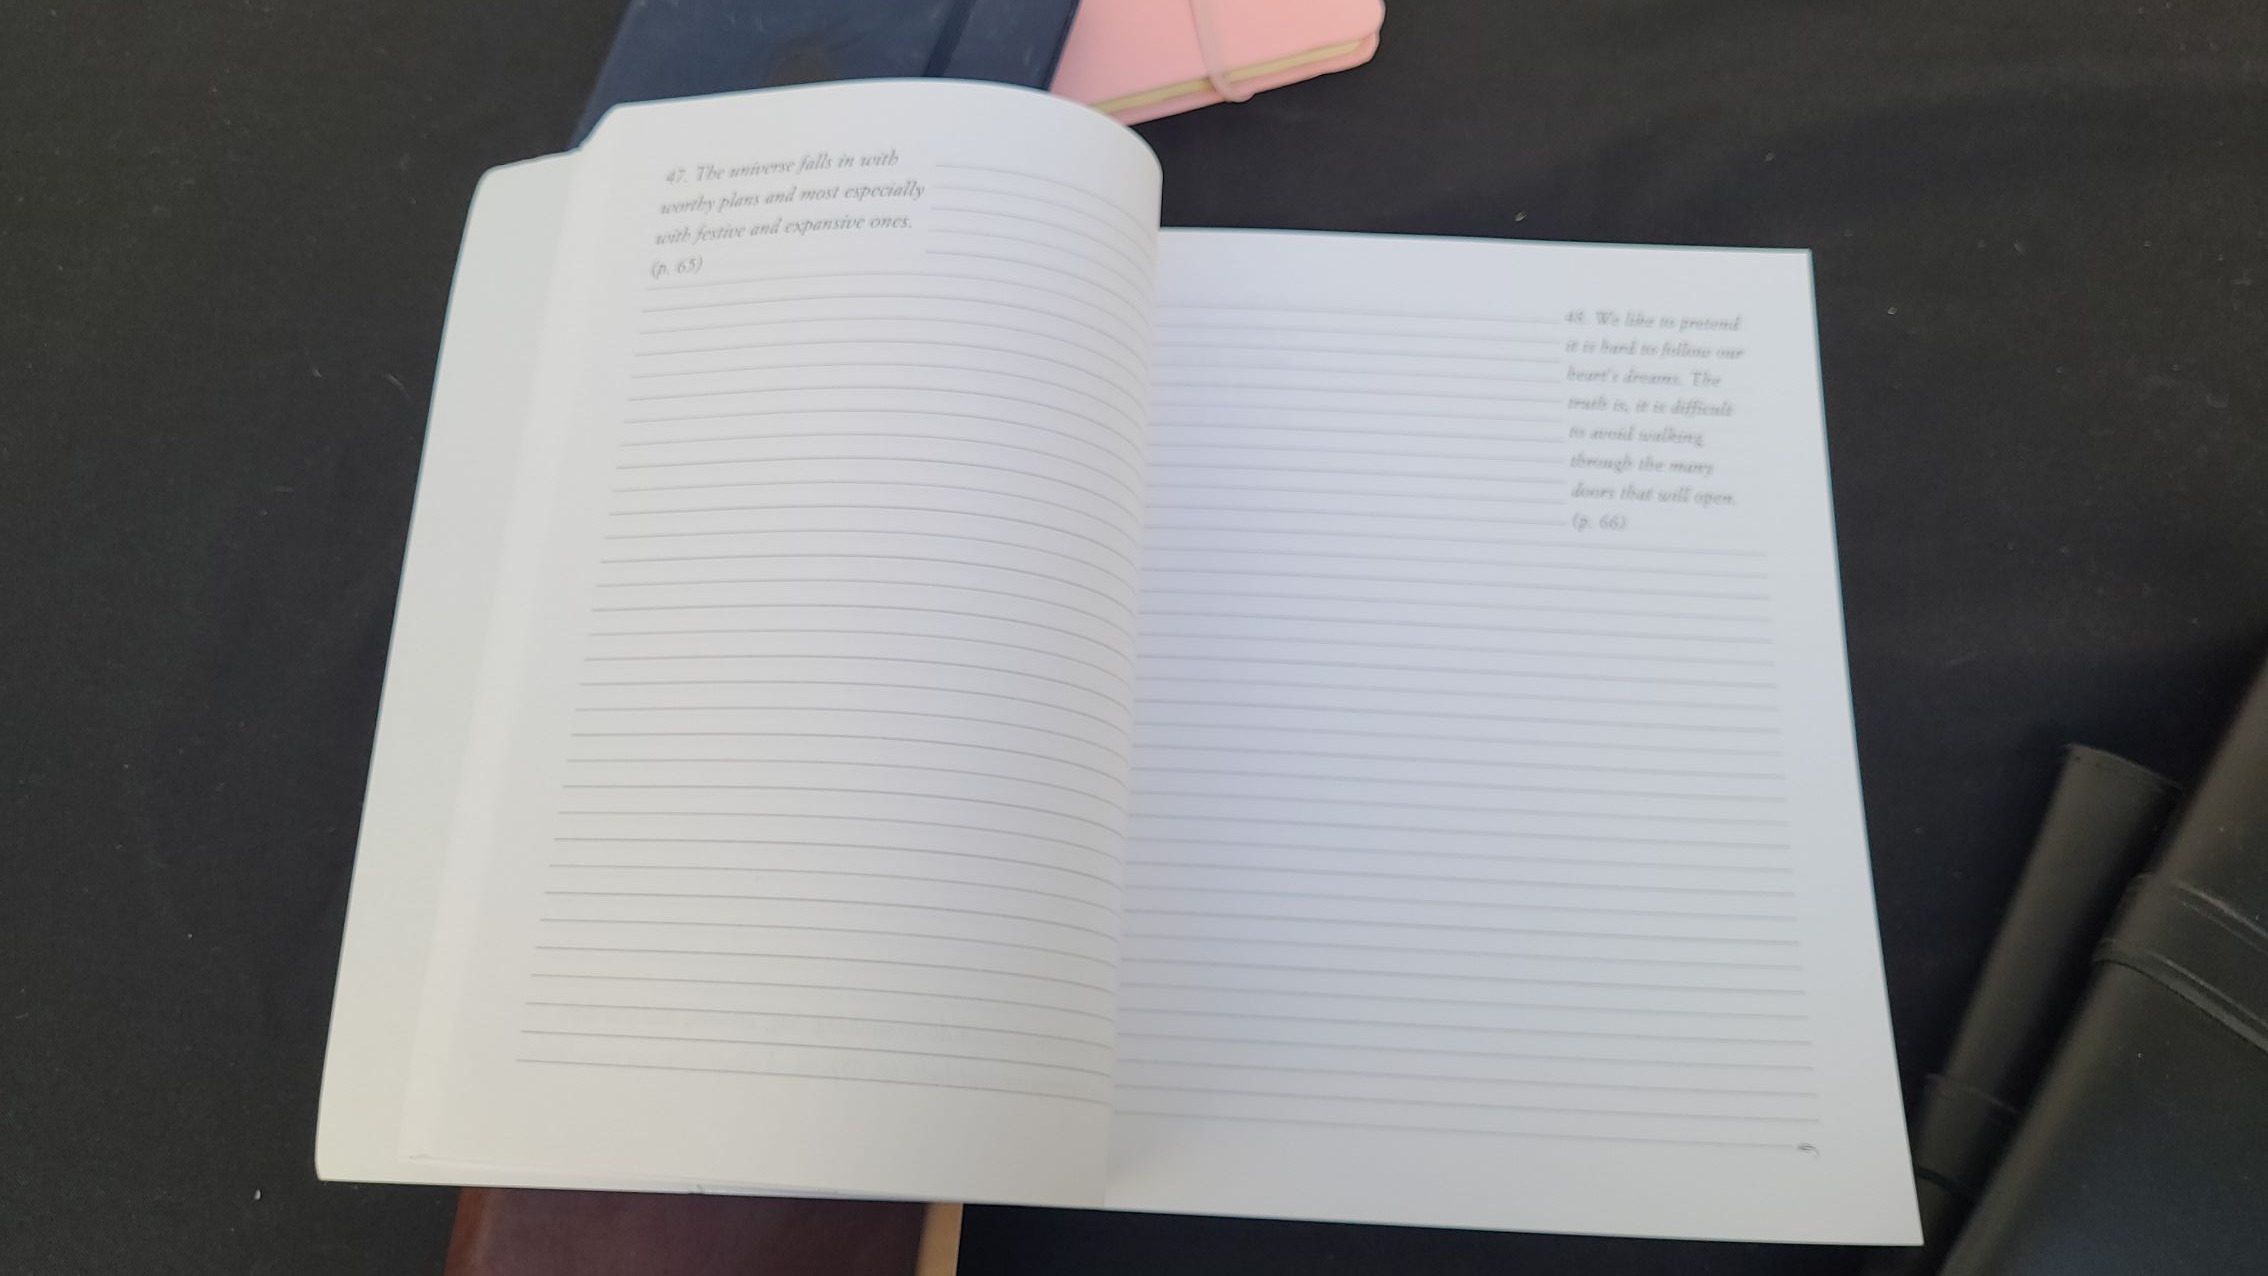 47. The universe falls in with
worthy plans and most especially
with festive and expansive ones.
(p. 65)
48. We like to pretend
it is hard to follow our
heart's dreams. The
truth is, it is difficult
to avoid walking
through the many
doors that will open.
(p. 66)